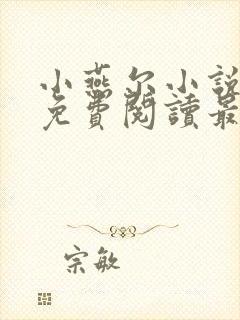 小燕尔小說
免費閱讀最
宗敏